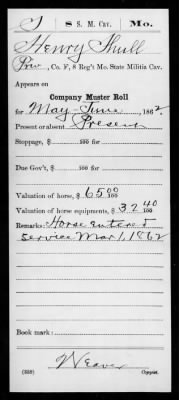 S | 8 S. M. Cav. | Mo.
Henry Shull
Priv, Co. F, 8 Reg't Mo. State Militia Cav.
Appears on
Company Muster Roll
for May-June, 1862.
Present or absent Present
Stoppage, $ 100 for
Due Gov't, $ 100 for
Valuation of horse, $ 65 00/100
Valuation of horse equipments, $ 32 40/100
Remarks: Horse entered
service Mar 1, 1862
Book mark:
Weaver
(358) Copyist.